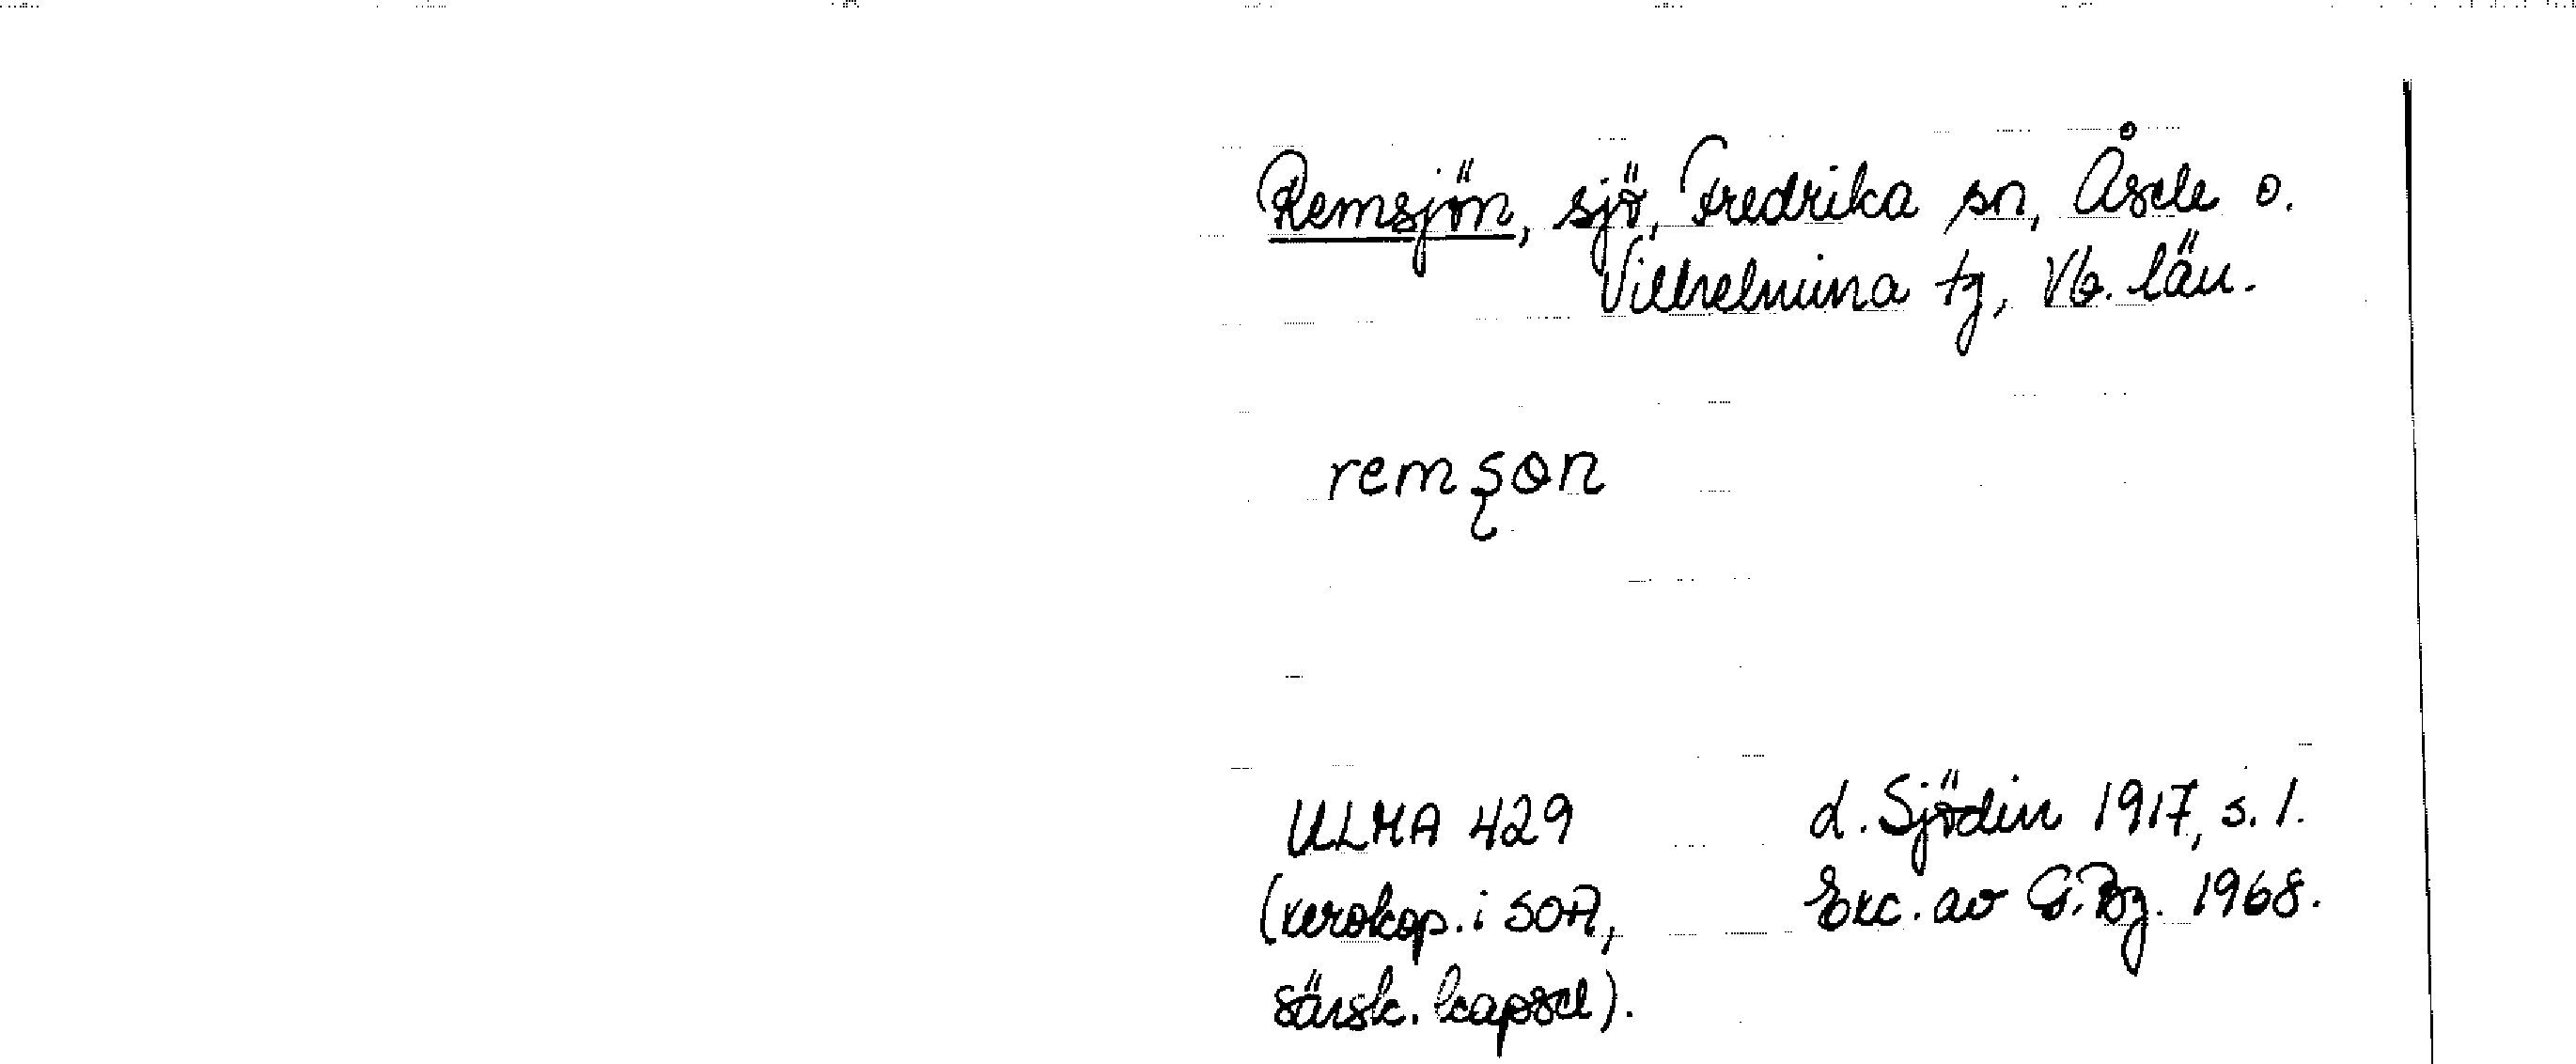 Remsjön, sjö, Fredrika sn, Åsele o.
Vilhelmina tg, Vb. län.
remşon
ULMA 429
(xerokop. i SOA,
särsk. kapsel).
L. Sjödin 1917, s. 1.
Exc. av G. Bg. 1968.